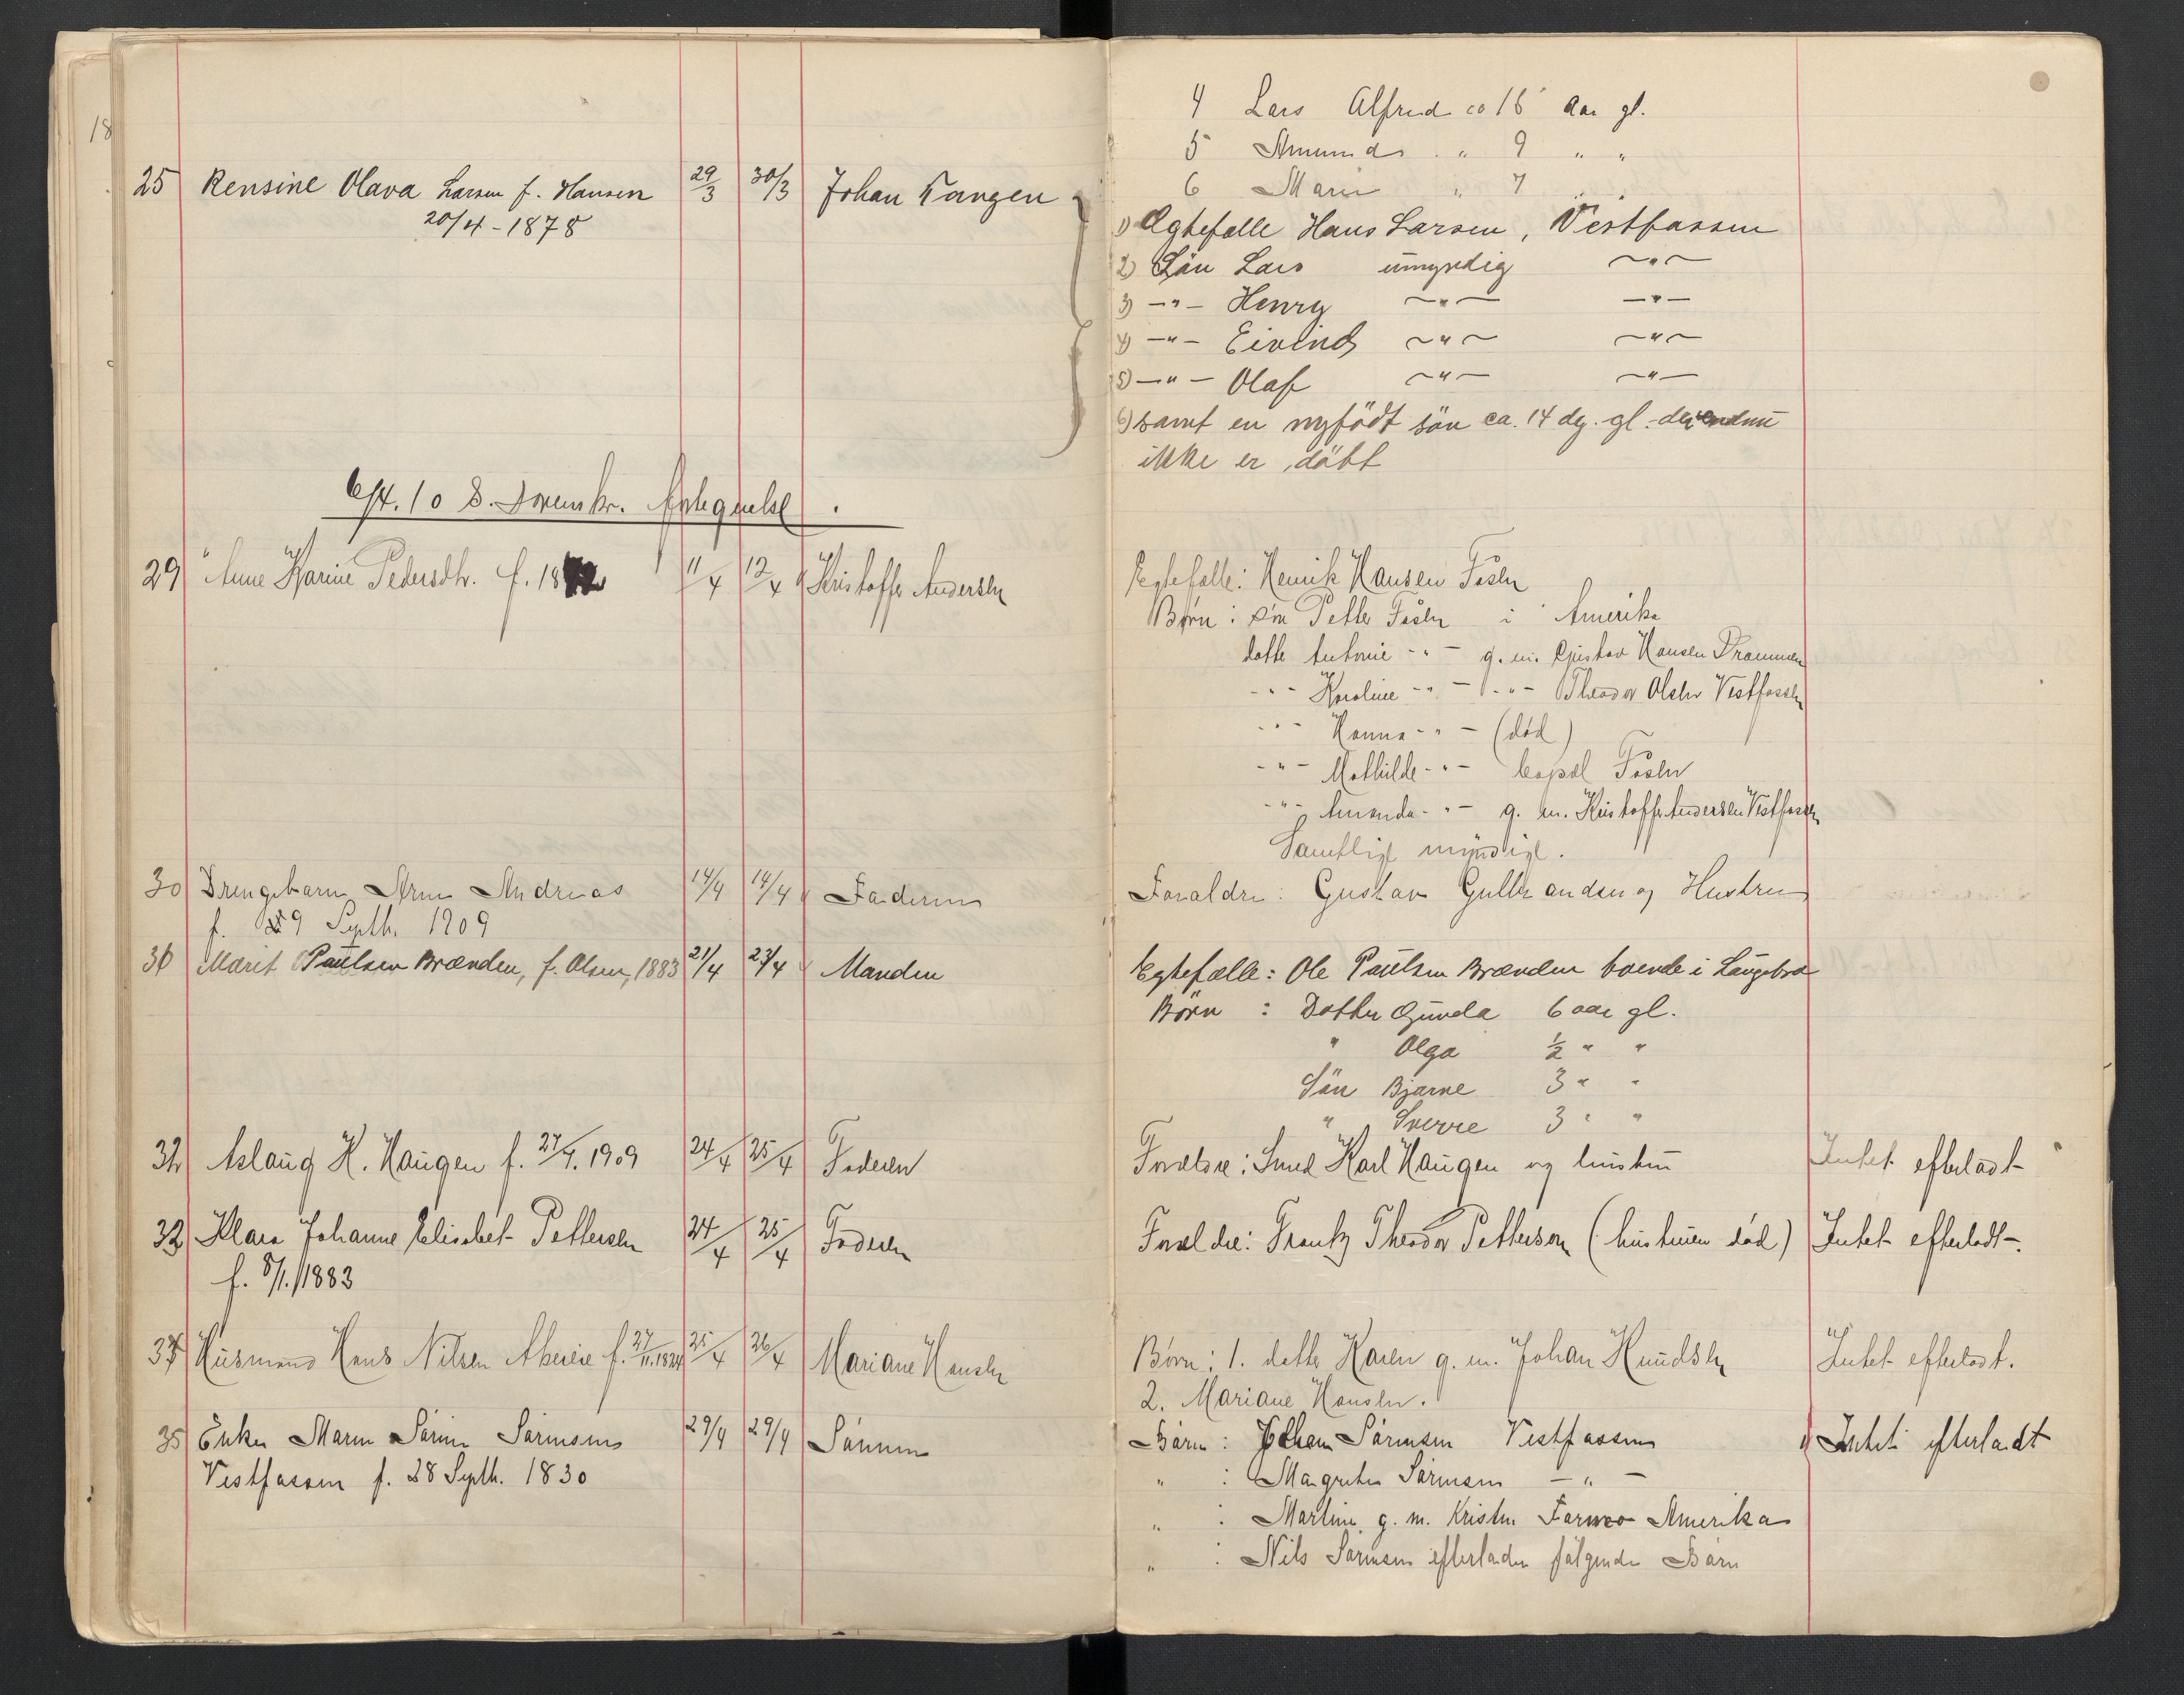 18
25 Rensine Olava Larsen f. Hansen 29/3 30/3 Johan Tangen
20/4 - 1878
Cft. 10 8.
29 Anne Karine Pedersdtr. f. 18 11/4 12/4 Kristoffer Andersen
30 Drengebarn Arne Andreas 14/4 14/4 Faderen
f. 29 Septb. 1909
31 Marit Paulsen Brænden, f. Olsen, 1883 21/4 23/4 Manden
32 Aslaug K. Haugen f. 27/4. 1909 24/4 25/4 Faderen
33 Klara Johanne Elisabet Pettersen 24/4 25/4 Faderen
f. 8/1. 1883
34 Husmand Hans Nilsen 25/4 26/4 Mariane Hansen
35 Enke Maren Sørine Sørensen 29/4 29/4 Sønnen
Vestfossen f. 28 Septb. 1830
4 Lars Alfred ca 16 Aar gl.
5 Amund " 9 " "
6 Marie " 7 " "
1) Ægtefælle Hans Larsen, Vestfossen
2) Sön Lars umyndig —"—
3) —"— Henry —"— —"—
4) —"— Eivind —"— —"—
5) —"— Olaf —"— —"—
6) samt en nyfödt sön ca. 14 dg. gl. der endnu
ikke er döbt
Ægtefælle: Henrik Hansen Fosen
Børn: søn Petter Fosen i Amerika
datter Antonie -"- g. m. Gustav Hansen Drammen
-"- Karoline -"- -"- Theodor Olsen Vestfossen
-"- Hanna -"- (død)
-"- Mathilde -"- Fosen
-"- Amanda -"- g. m. Kristoffer Andersen Vestfossen
Samtlige myndige.
Forældre: Gustav Gulbranden og Hustru
Egtefælle: Ole Paulsen Brænden boende i Laugebro
Børn : Datter Gunda 6 aar gl.
" Olga ½ " "
Sön Bjarne 3 " "
" Sverre 3 " "
Forældre: Smed Karl Haugen og hustru Intet efterladt
Forældre: Frantz Theodor Pettersen (hustruen død) Intet efterladt.
Børn: 1. datter Karen g. m. Johan Knudsen Intet efterladt.
2. Mariane Hansen.
Børn: Johan Sørensen Vestfossen Intet efterladt
" : Magrethe Sørensen — " —
" : Martine g. m. Kristen Amerika
" : Nils Sørensen efterlader følgende Børn